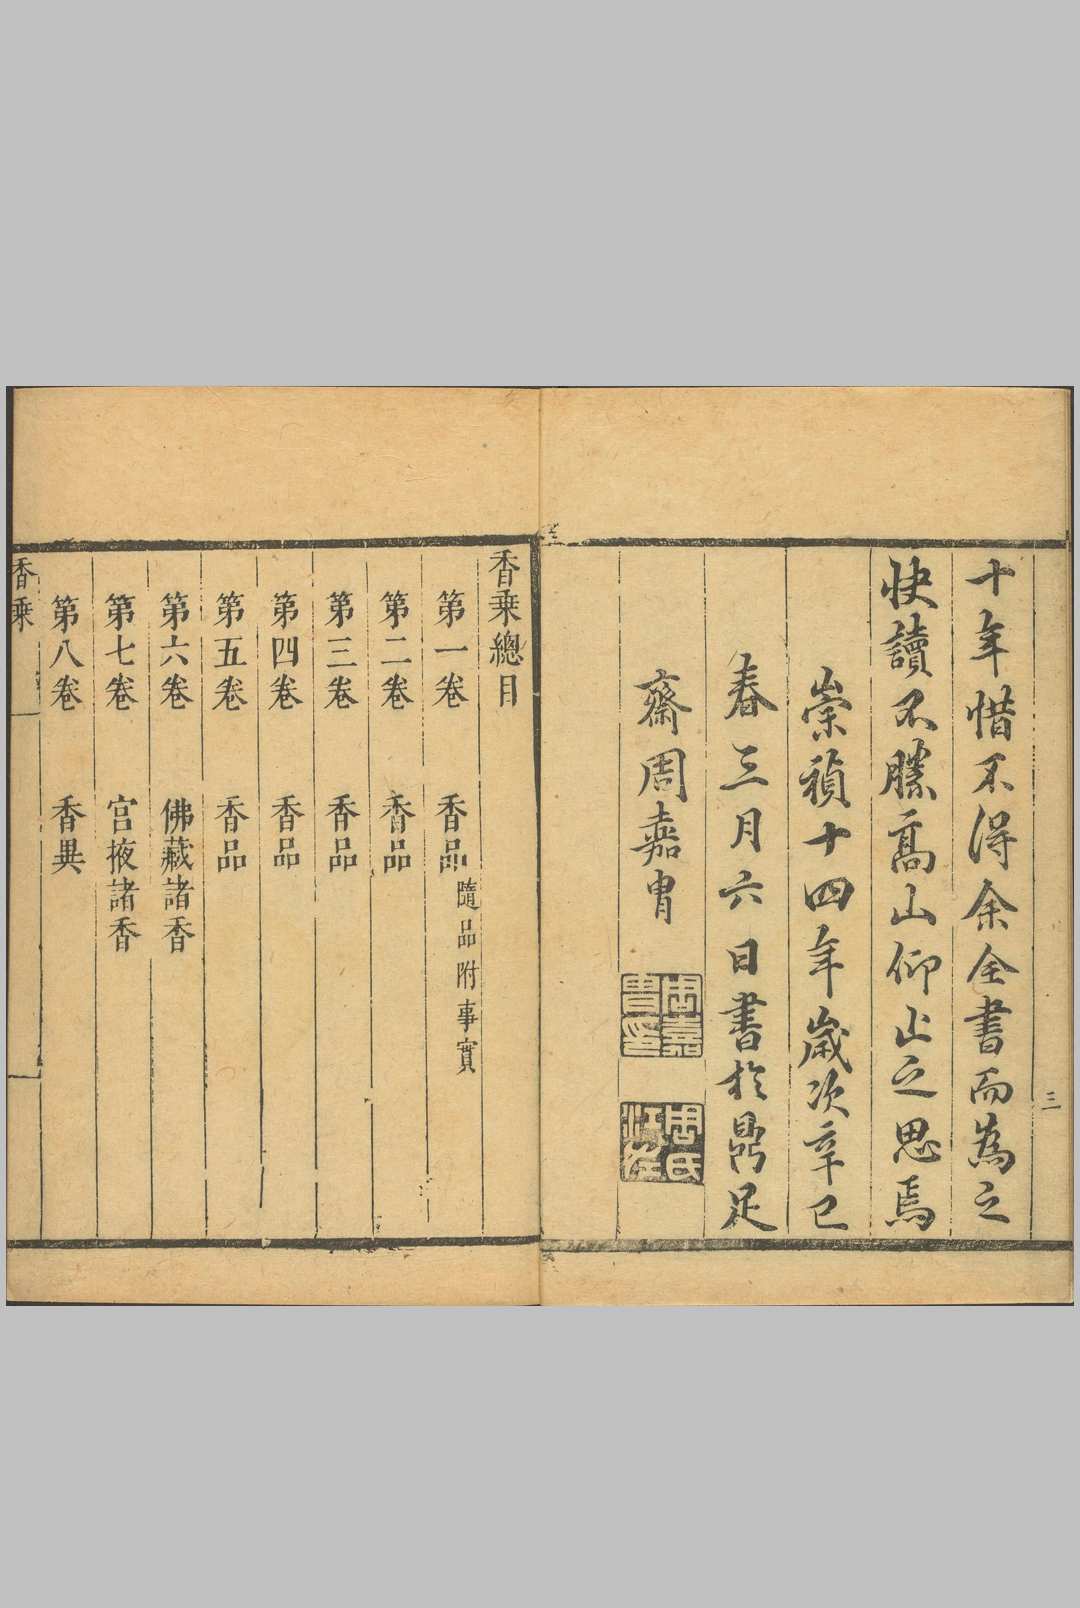 十年惜不得余全書而為之
快讀不勝高山仰止之思焉
崇禎十四年歲次辛巳
春三月六日書於鼎足
齋周嘉冑
周嘉冑印
周氏江左
三
香乘總目
第一卷 香品 隨品附事實
第二卷 香品
第三卷 香品
第四卷 香品
第五卷 香品
第六卷 佛藏諸香
第七卷 宮掖諸香
第八卷 香異
香乘